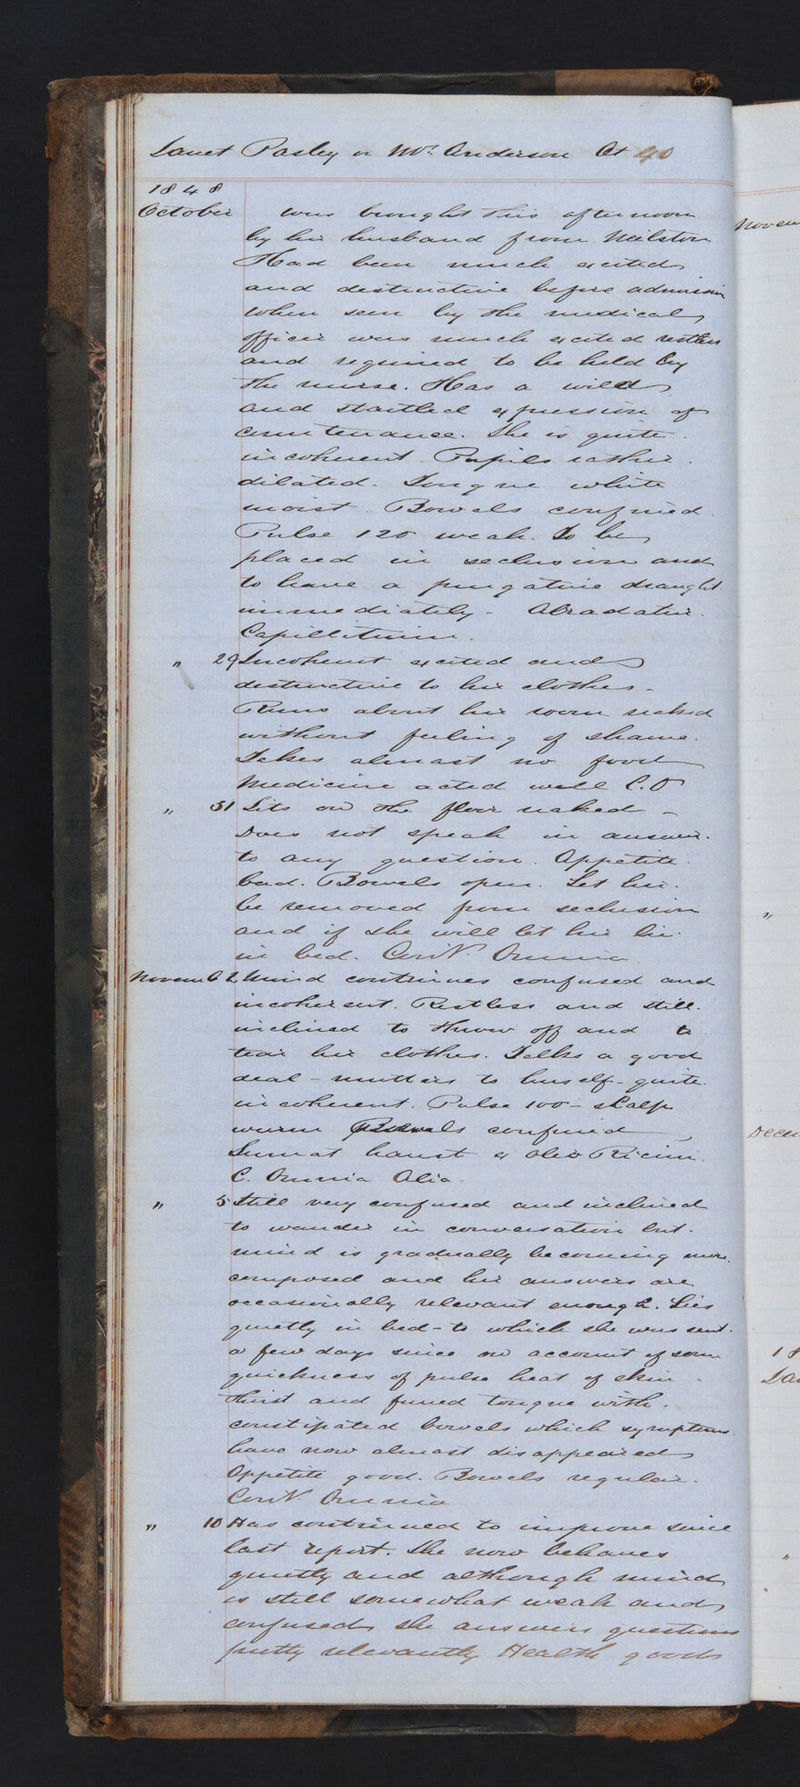 Janet Pasley or Mrs. Anderson Æt 40
1848
October was brought this afternoon
by her husband from Neilston
Had been much excited
and destructive before admission
When seen by the medical
officer was much excited restless
and required to be held by
the nurse. Has a wild
and startled expression of
countenance. She is quite
incoherent. Pupils rather
dilated. Tongue white
moist. Bowels confined.
Pulse 120 weak. To be
placed in seclusion and
to have a purgative draught
immediately - Abradatur
Capillitium.
" 29 Incoherent excited and
destructive to her clothes.
Runs about her room naked
without feeling of shame.
Takes almost no food
Medicine acted well C.O
" 31 Sits on the floor naked -
Does not speak in answer
to any question. Appetite
bad. Bowels open. Let her
be removed from seclusion
and if she will let her lie
in bed. Contr. Omnia
Novemb 2 Mind continues confused and
incoherent. Restless and still
inclined to throw off and to
tear her clothes. Talks a good
deal - mutters to herself - quite
incoherent. Pulse 100 - scalp
warm Bowels confined
Sumat haust ex Oleo Ricini
C. Omnia Alia
" 5 Still very confused and inclined
to wander in conversation but
mind is gradually becoming more
composed and her answers are
occasionally relevant enough. Lies
quietly in bed - to which she was sent
a few days since on account of some
quickness of pulse heat of skin
thirst and furred tongue with
constipated bowels which symptoms
have now almost disappeared
Appetite good. Bowels regular.
Contr. Omnia
" 10 Has continued to improve since
last report. She now behaves
quietly and although mind
is still somewhat weak and
confused she answers questions
pretty relevantly Health good
Novem
"
Decem
18
Jan
"